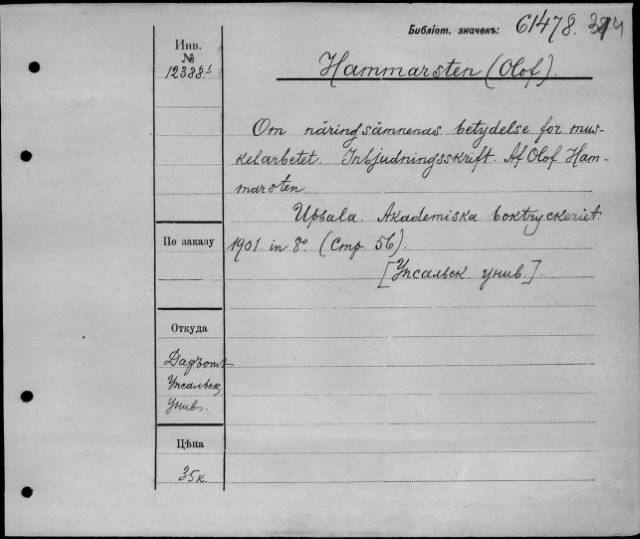 Библіот. значекъ: 61478.
Инв.
№
12388¹
Hammarsten (Olof).
Om näringsämnenas betydelse for mus-
kelarbetet. Inbjudningsskrift. Af Olof Ham-
marsten.
Upsala. Akademiska boktryckeriet
1901 in 8º. (Стр. 56).
[Упсальск. унив.]
По заказу
Откуда
Упсальск.
унив.
Цѣна
35к